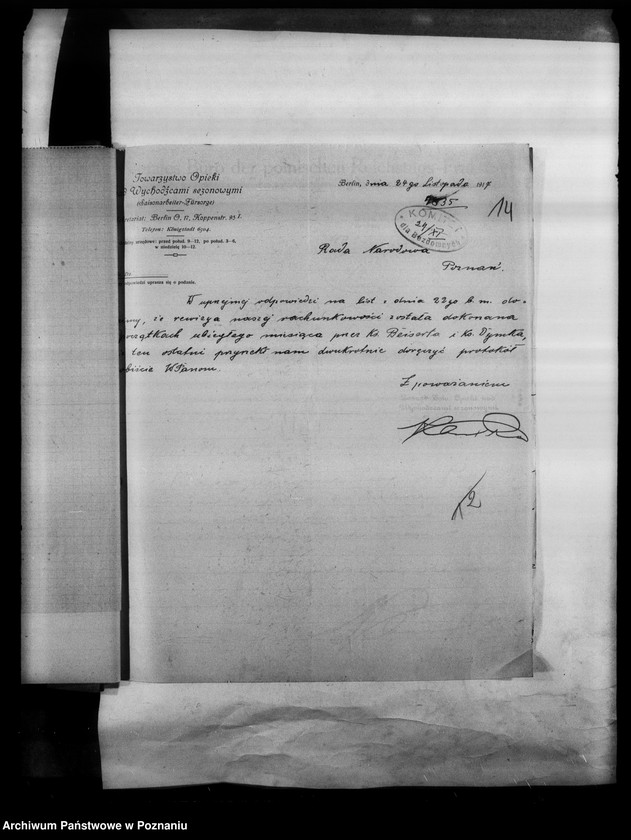 Towarzystwo Opieki
Wychodźcami sezonowymi
(Saisonarbeiter-Fürsorge)
Berlin O. 17, Koppenstr. 95 I.
Telefon: Königstadt 6704.
urzędowe: przed połud. 9–12, po połud. 3–6,
w niedzielę 10–12.
uprasza się o podanie.
Berlin, dnia 24go Listopada 1917
14
KOMITET
24/XI
dla Bezdomnych
Rada Narodowa
Poznań.
W uprzejmej odpowiedzi na list z dnia 22go b. m. do-
, że rewizya naszej rachunkowości została dokonana
ubiegłego miesiąca przez ks. Beiserta i ks. Dymka,
ten ostatni przyrzekł nam dwukrotnie doręczyć protokół
WPanom.
Z poważaniem
2
Archiwum Państwowe w Poznaniu